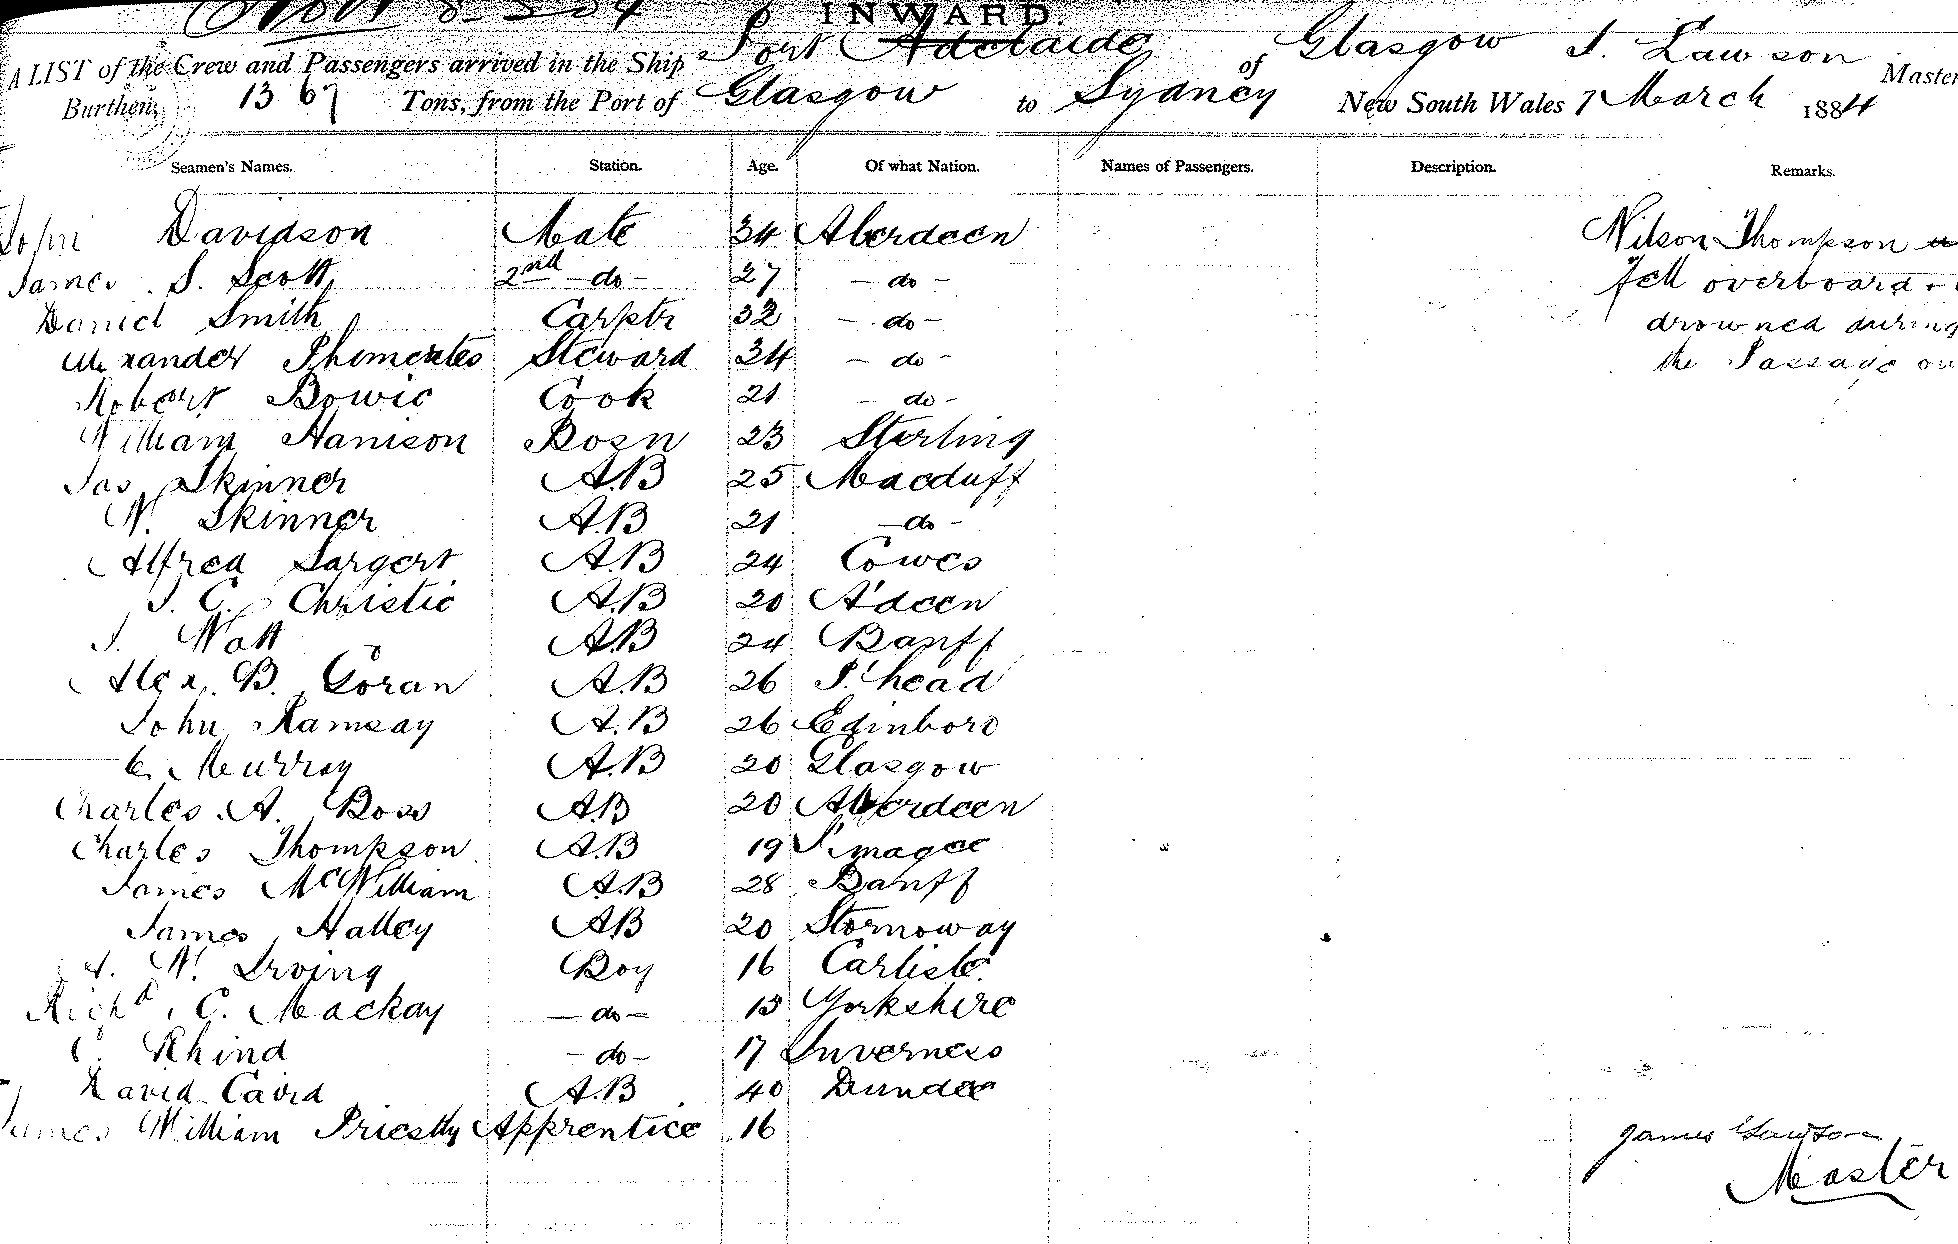 INWARD.
A LIST of the Crew and Passengers arrived in the Ship Port Adelaide of Glasgow J. Lawson Master
Burthen 1367 Tons, from the Port of Glasgow to Sydney New South Wales 7 March 1884
Seamen's Names. Station. Age. Of what Nation. Names of Passengers. Description. Remarks.
John Davidson Mate 34 Aberdeen Nilson Thompson
James S. Scott 2nd -do- 27 -do- fell overboard +
Daniel Smith Carptr 32 -do- drowned during
Alexander Steward 34 -do- the Passage
Robert Bowie Cook 21 -do-
William Harrison Bosn 23 Sterling
Jas Skinner A.B 25 Macduff
W. Skinner A.B 21 -do-
Alfred Sargert A.B 24 Cowes
J. C. Christie A.B 20 A'deen
J. Watt A.B 24 Banff
Alex. B. Goran A.B 26 P.head
John Ramsay A.B 26 Edinboro
C. Murray A.B 20 Glasgow
Charles A. Ross A.B 20 Aberdeen
Charles Thompson A.B 19
James McWilliam A.B 28 Banff
James Halley A.B 20 Stornoway
W. Irving Boy 16 Carlisle
Richd C. Mackay -do- 15 Yorkshire
C. Rhind -do- 17 Inverness
David Caird A.B 40 Dundee
James William Priestly Apprentice 16
James Lawson
Master